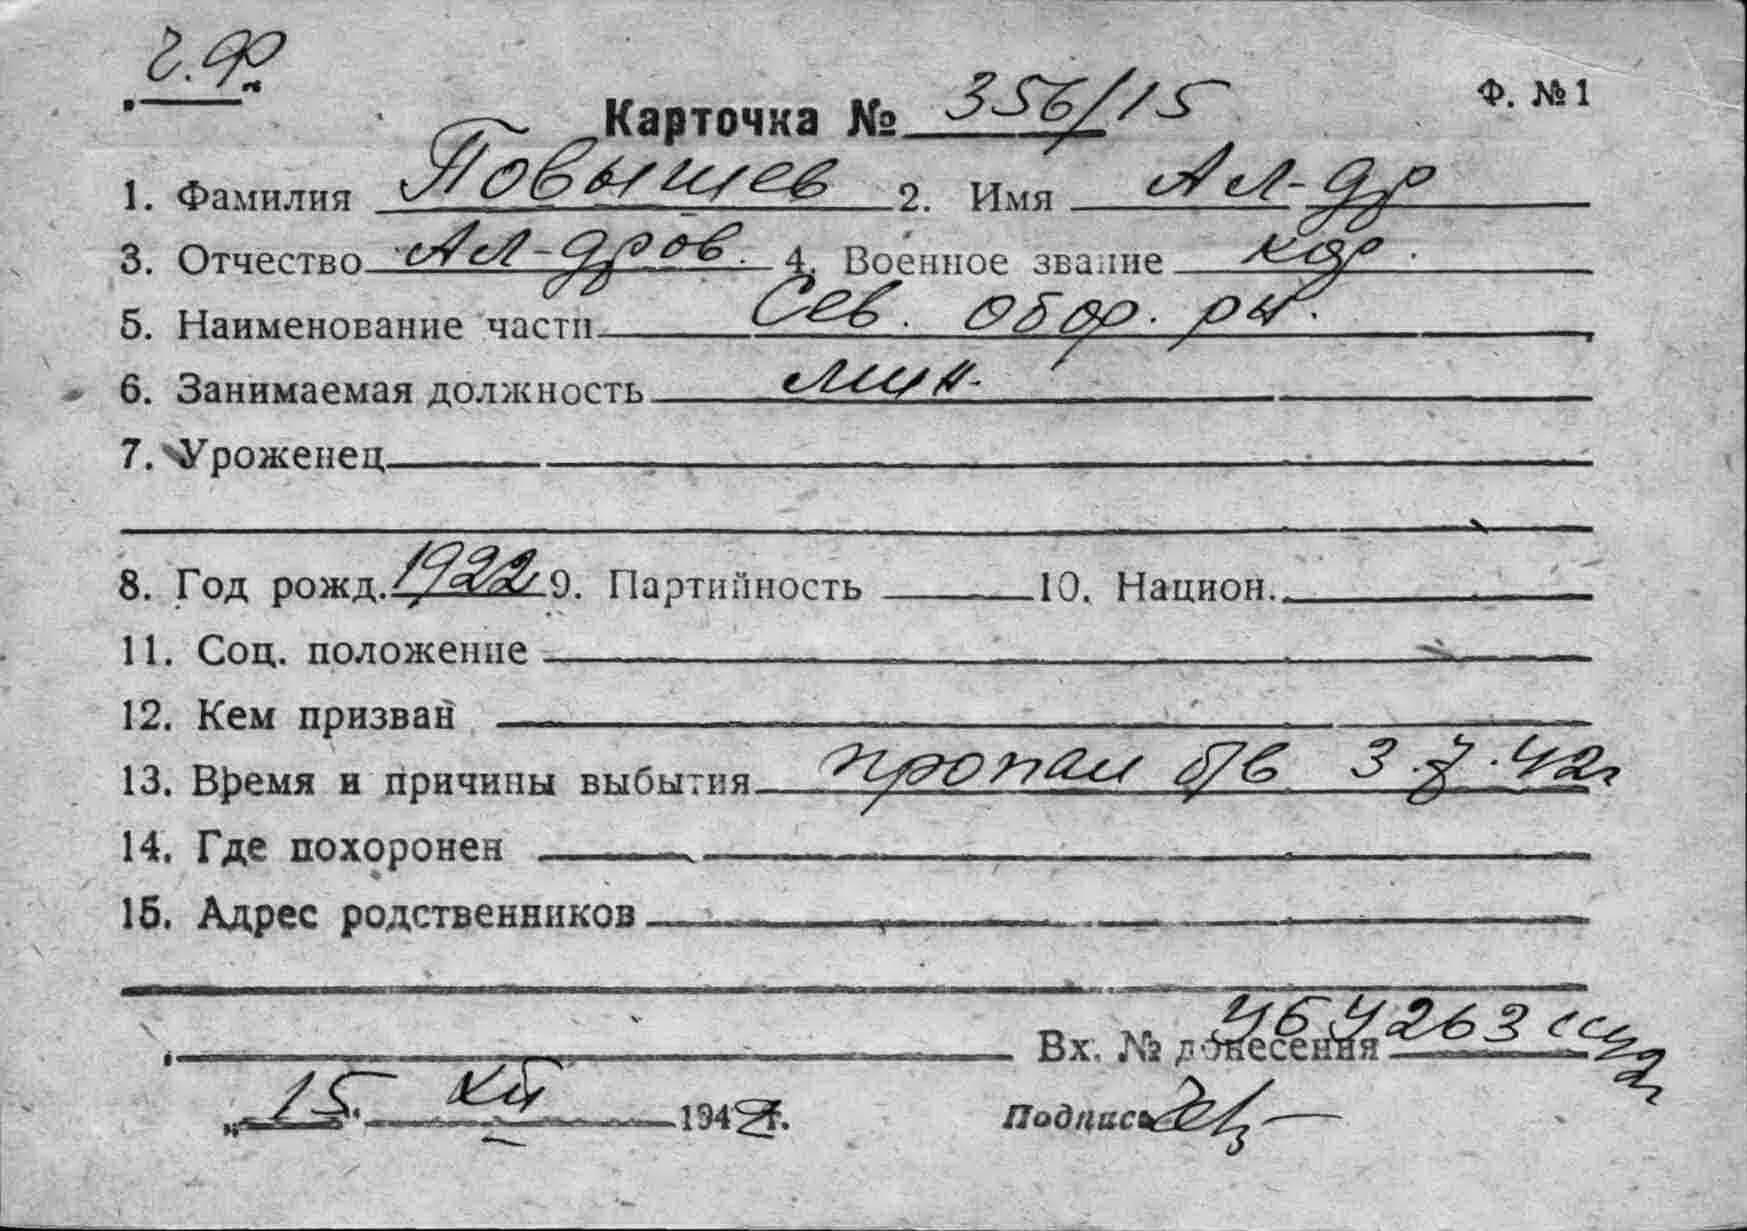 ч.ф
Ф. №1
Карточка № 356/15
1. Фамилия Повышев 2. Имя Ал-др
3. Отчество Ал-дров. 4. Военное звание кр.
5. Наименование части Сев. обор. р-н.
6. Занимаемая должность мин.
7. Уроженец
8. Год рожд. 1922 9. Партийность 10. Национ.
11. Соц. положение
12. Кем призван
13. Время и причины выбытия пропал б/в 3.7.42г
14. Где похоронен
15. Адрес родственников
Вх. № донесения
„15" XII 194 г. Подпись